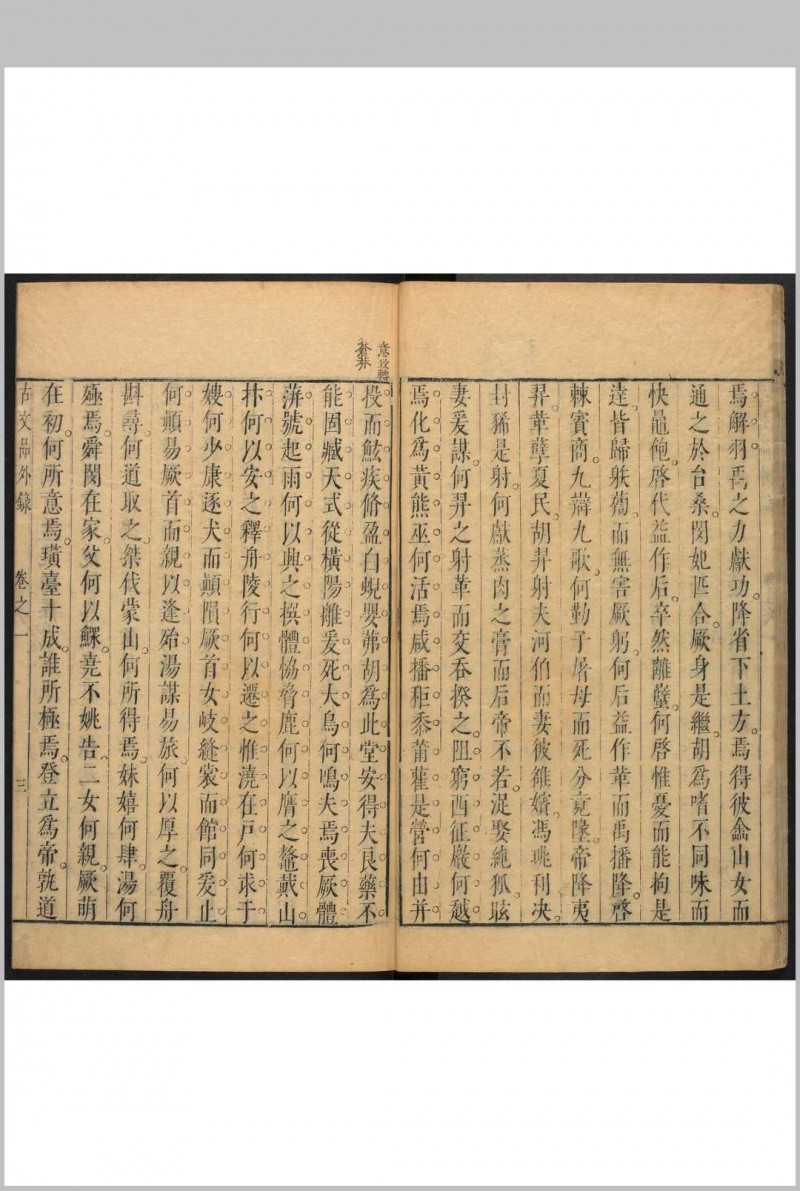 焉解羽禹之力獻功降省下土方焉得彼嵞山女而
通之於台桑閔妃匹合厥身是繼胡爲嗜不同味而
快鼂飽啓代益作后卒然離蠥何啓惟憂而能拘是
達皆歸䠶𥷚而無害厥躬何后益作革而禹播降啓
棘賓商九辯九歌何勤子屠母而死分竟墬帝降夷
羿革孽夏民胡羿射夫河伯而妻彼雒嬪馮珧利决
封豨是射何獻蒸肉之膏而后帝不若浞娶純狐眩
妻爰謀何羿之射革而交吞揆之阻窮西征巖何越
焉化爲黃熊巫何活焉咸播秬黍莆雚是營何由并
意致轉
蒼莽
投而鮌疾脩盈白蜺嬰茀胡爲此堂安得夫良藥不
能固臧天式從橫陽離爰死大鳥何鳴夫焉喪厥體
蓱號起雨何以興之撰體恊脅鹿何以膺之鼇戴山
抃何以安之釋舟陵行何以遷之惟澆在戸何求于
嫂何少康逐犬而顚隕厥首女岐縫裳而館同爰止
何顚易厥首而親以逢殆湯謀易旅何以厚之覆舟
斟尋何道取之桀伐蒙山何所得焉妹嬉何肆湯何
殛焉舜閔在家父何以鰥堯不姚告二女何親厥萌
在初何所意焉璜臺十成誰所極焉登立爲帝孰道
古文品外錄 卷之一 三